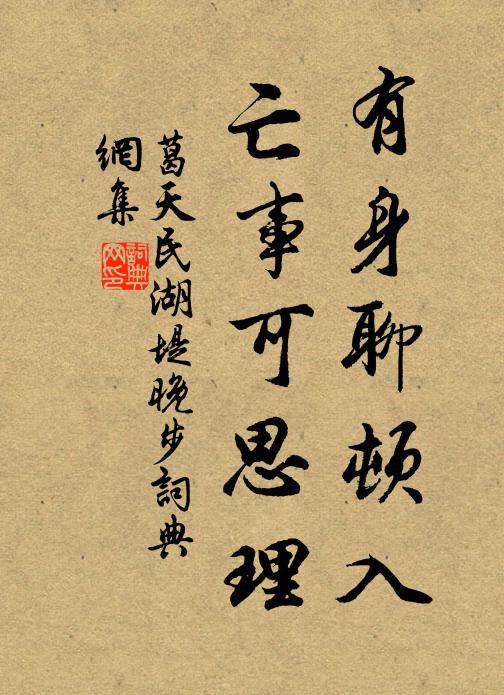 有身聊頓入
亡事可思理
葛天民湖堤晚步詞典
網集
詞典
网印